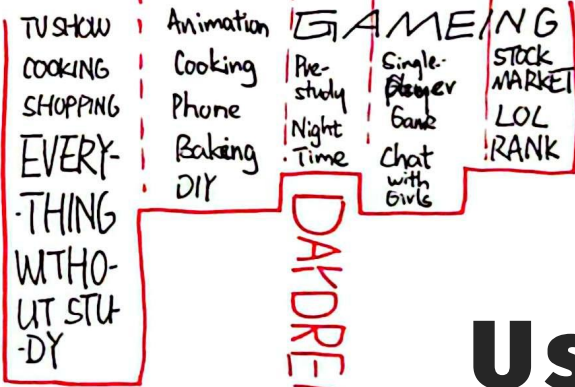 TV SHOW
COOKING
SHOPPING
EVERY-
-THING
WITHO-
UT STU-
-DY
Animation
Cooking
Phone
Baking
DIY
GAMEING
Pre-
study
Night
Time
Single-
Player
Game
Chat
with
Girls
STOCK
MARKET
LOL
RANK
DAYDRE
Us